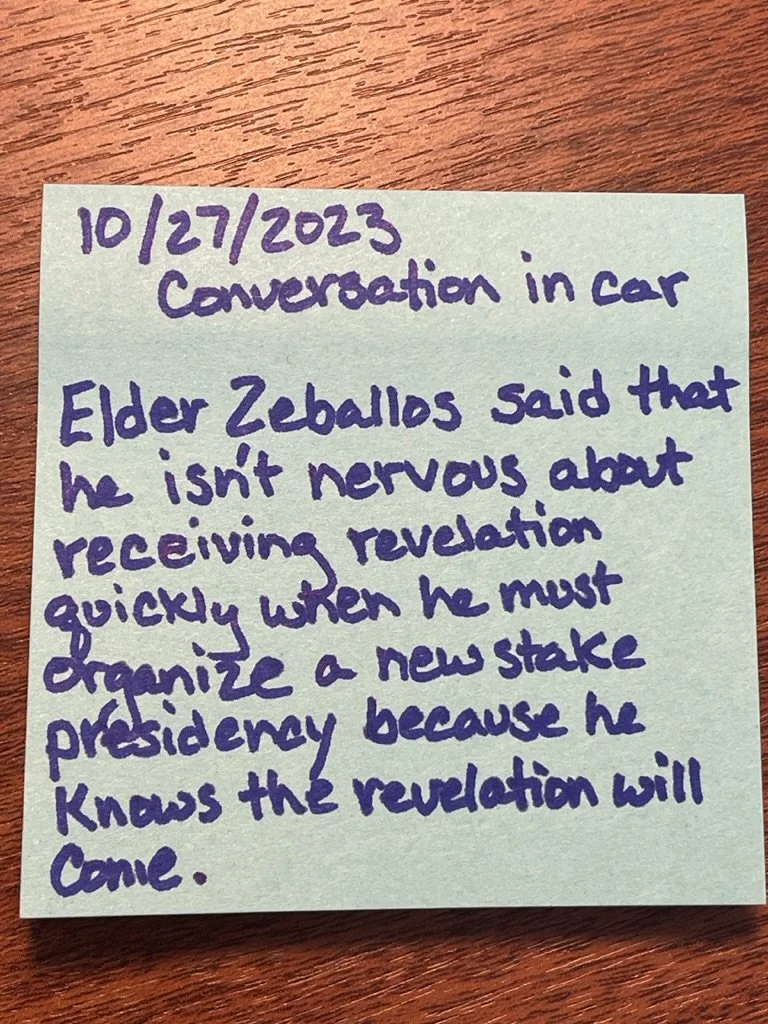 10/27/2023
Conversation in car
Elder Zeballos said that
he isn't nervous about
receiving revelation
quickly when he must
organize a new stake
presidency because he
knows the revelation will
come.